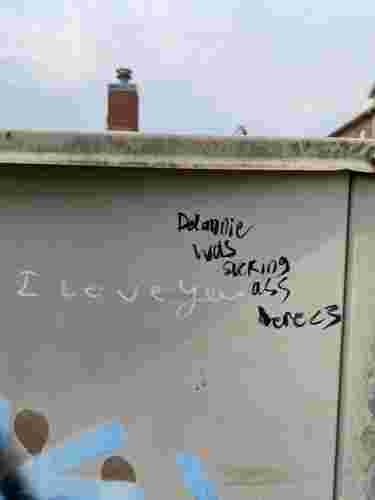 Delannie
was
sucking
ass
here <3
I Love You